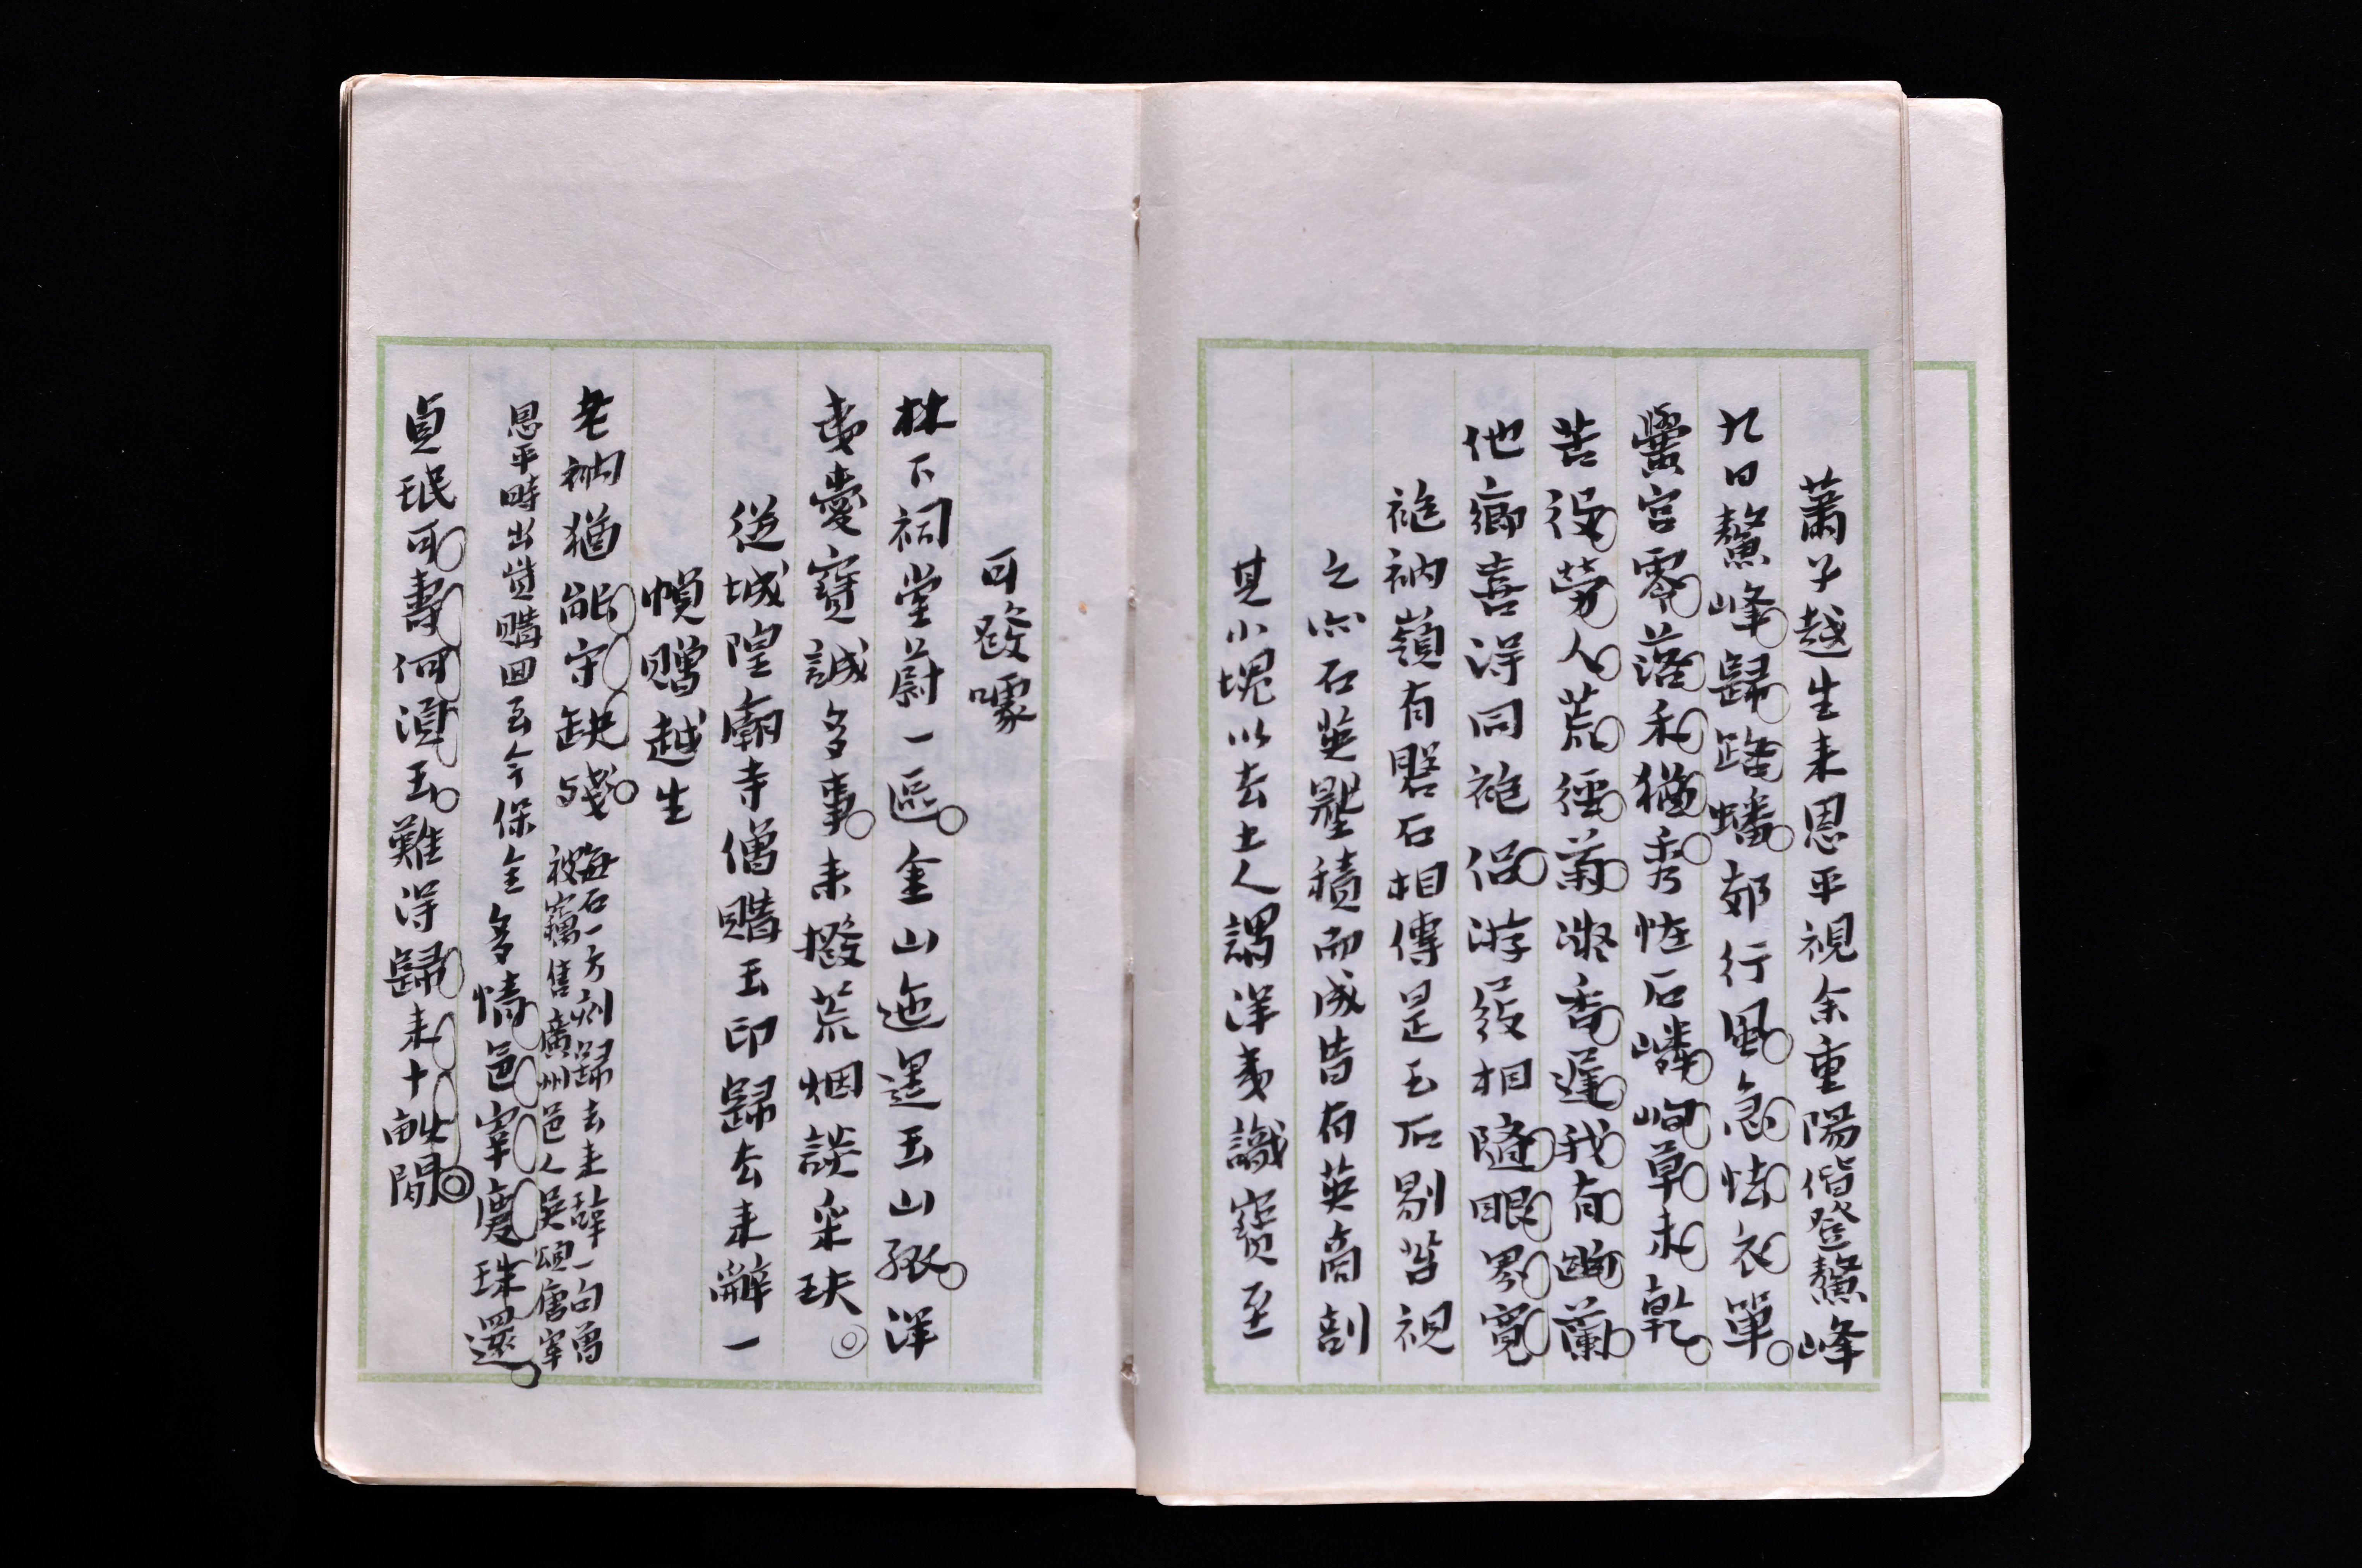 蕭子越生来恩平視余重陽偕登鰲峰
九日鰲峰歸路蟠郊行風急怯衣單
黌宮零落禾猶秀恠石嶙峋草未乾
苦役勞人荒徑菊遲我有幽蘭
他鄉喜得同袍侶游屐相隨眼界寬
袍衲嶺有磐石相傳是玉石剔苔視
之亦石英壘積而成皆有英商剖
其小塊以去土人謂洋夷識寶至
可發噱
林下祠堂蔚一區金山迤邐玉山孤洋
夷愛寶誠多事未撥荒烟談采玞
從城隍廟寺僧購玉印歸去来辭一
幀贈越生
老衲猶能守缺殘
海石一方刻歸去来辭一句曾
被竊售廣州邑人吳頌唐宰
恩平時出貲購回至今保全
多情邑宰慶珠還
貞珉可壽何須玉難得歸来十畝閒